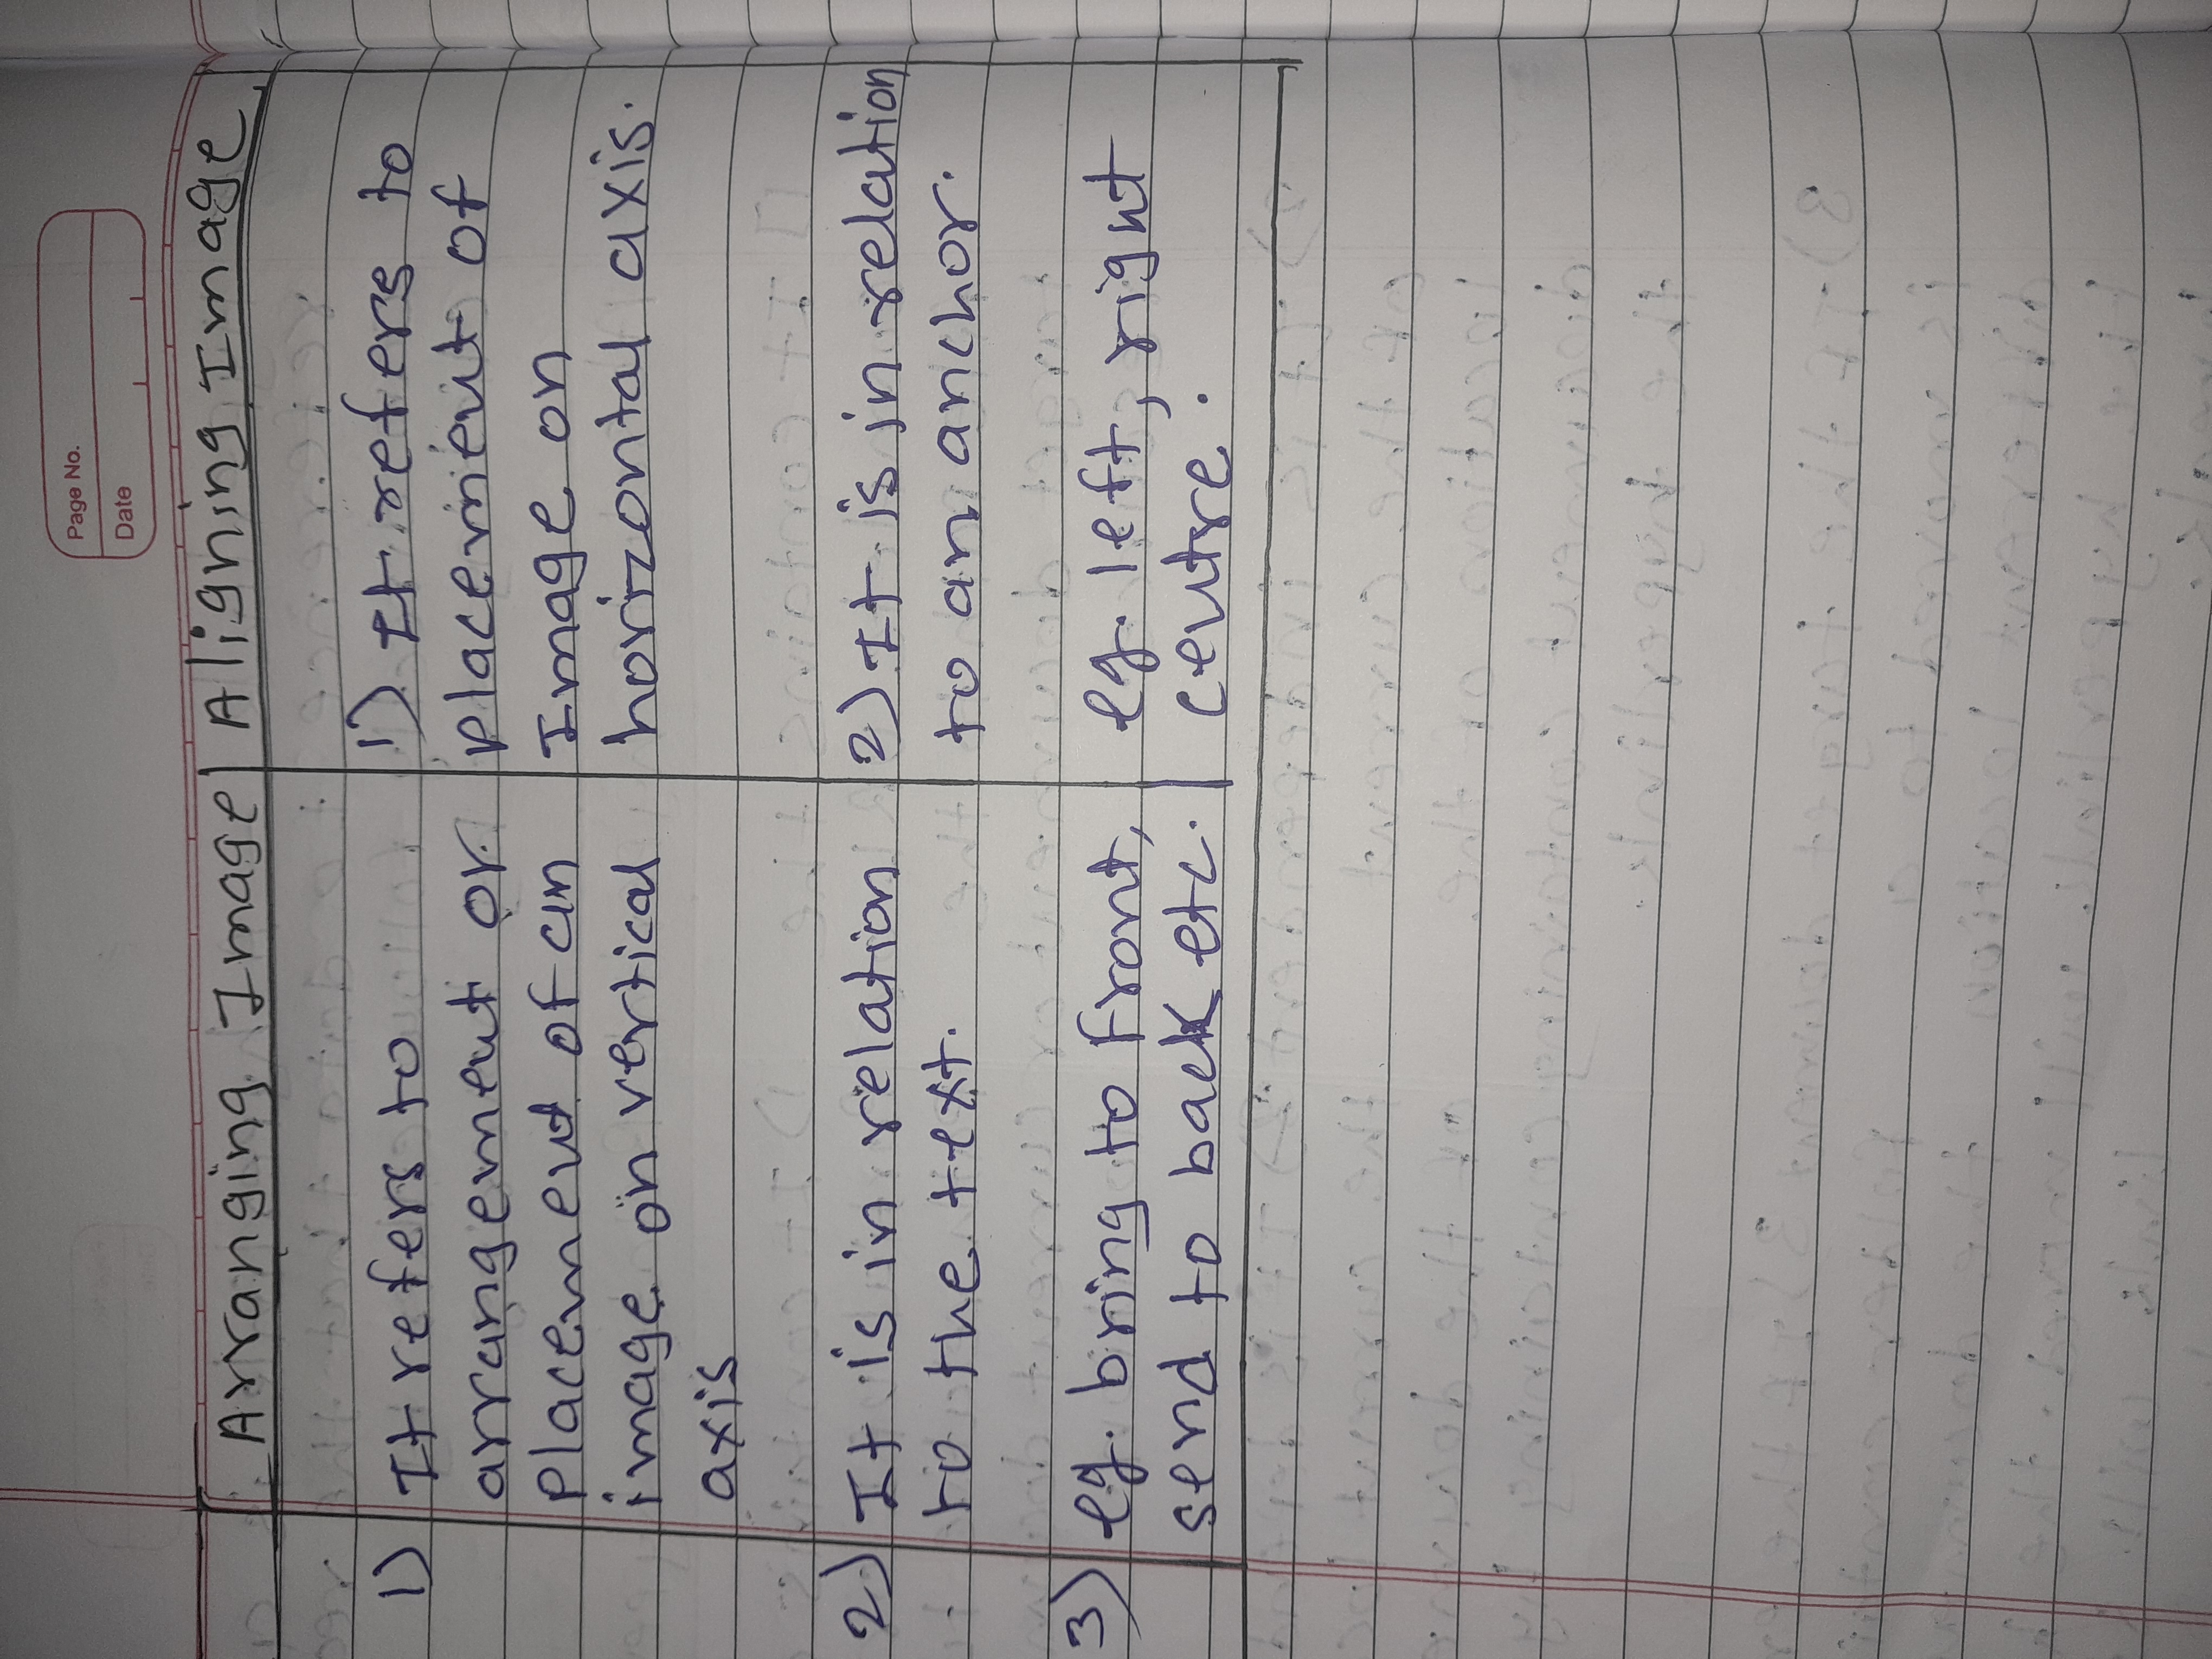 Page No.
Date
Arranging Image | Aligning Image
1) It refers to
arrangement or
placement of an
image on vertical
axis
2) It is in relation
to the text.
3) eg. bring to front,
send to back etc.
1) It refers to
placement of
Image on
horizontal axis.
2) It is in relation
to an anchor.
eg. left, right
centre.